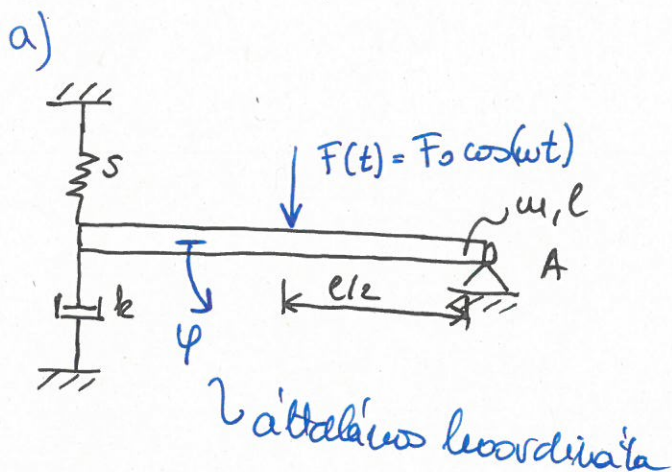 a)
s
F(t) = F₀ cos(ωt)
m, l
A
k
l/2
φ
általános koordináta